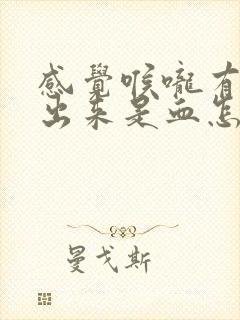 感覺喉嚨有
出來是血怎
曼戈斯